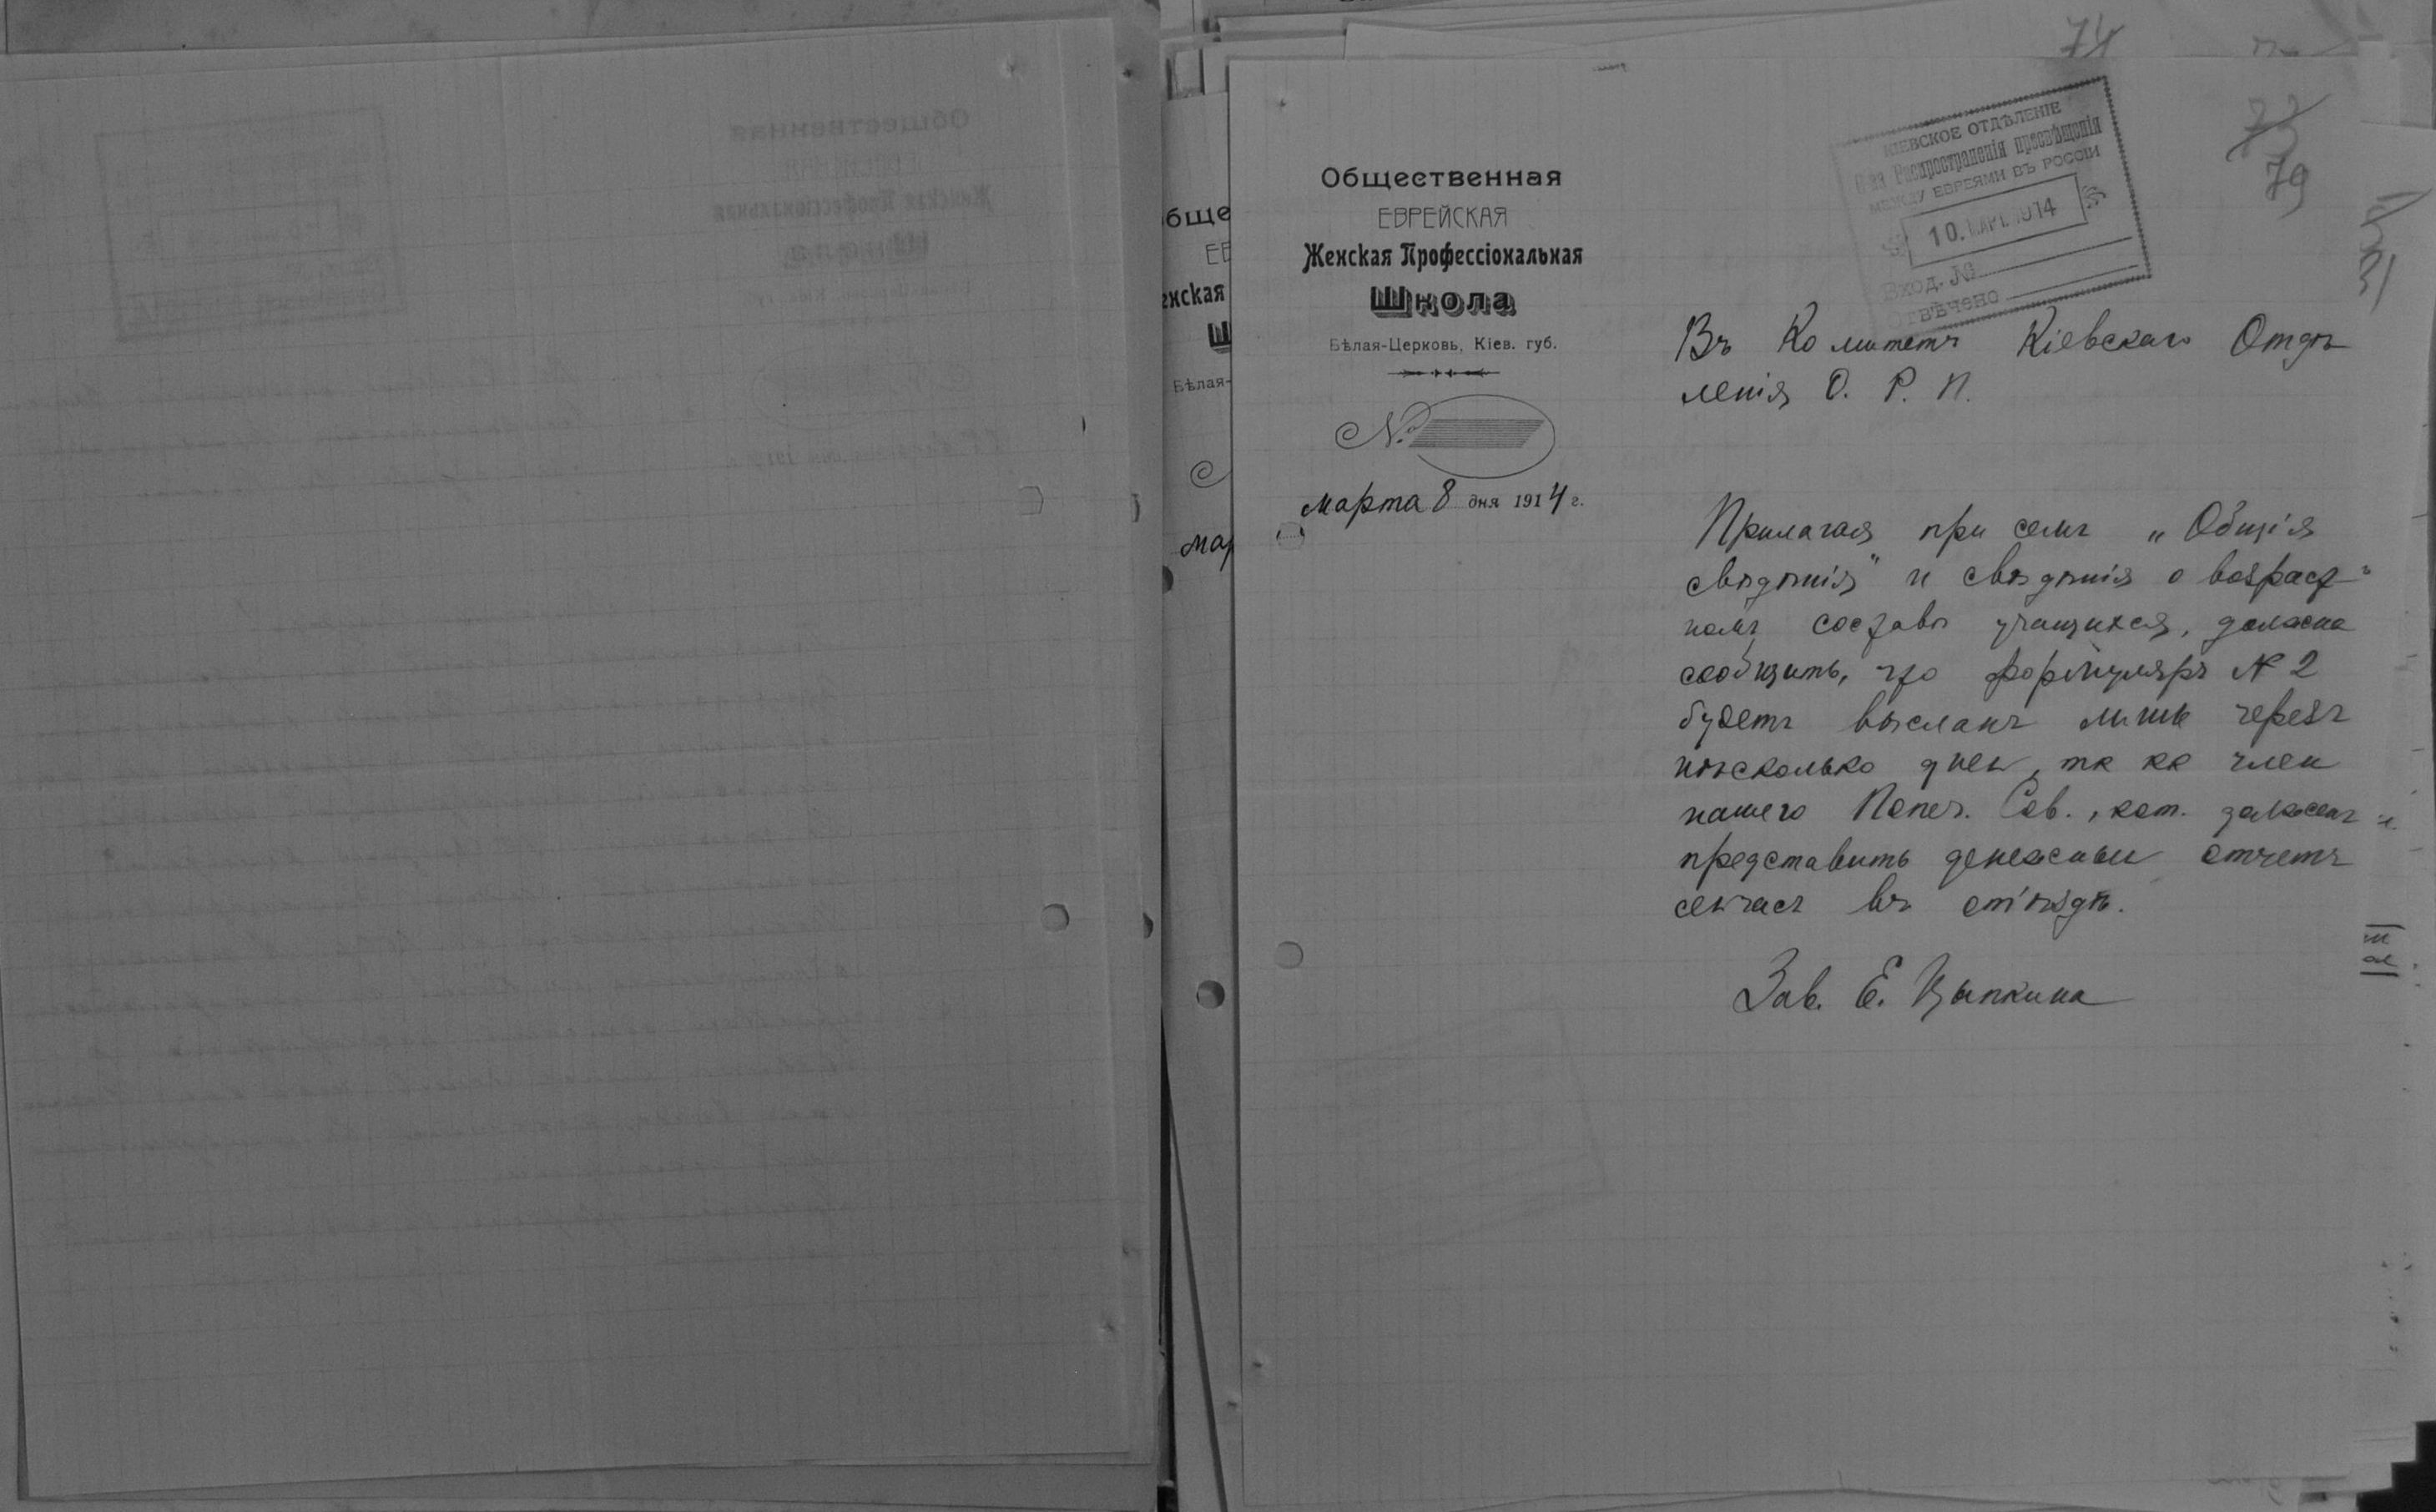 74
73
79
КІЕВСКОЕ ОТДѢЛЕНІЕ
О-ва Распространенія просвѣщенія
МЕЖДУ ЕВРЕЯМИ ВЪ РОССІИ
10. МАРТ. 1914
Вход. №
Отвѣчено
Общественная
ЕВРЕЙСКАЯ
Женская Профессіональная
Школа
Бѣлая-Церковь, Кіев. губ.
№
марта 8 дня 1914 г.
Въ Комитетъ Кіевскаго Отдѣ
ленія О. Р. П.
Прилагая при семъ „Общія
свѣдѣнія" и свѣдѣнія о возраст-
номъ составѣ учащихся, должна
сообщить, что формуляръ № 2
будетъ высланъ лишь черезъ
нѣсколько дней, тк кк член
нашего Попеч. Сов., кот. долженъ
представить денежный отчетъ
сейчасъ въ отъѣздѣ.
Зав. Е. Цыпкина